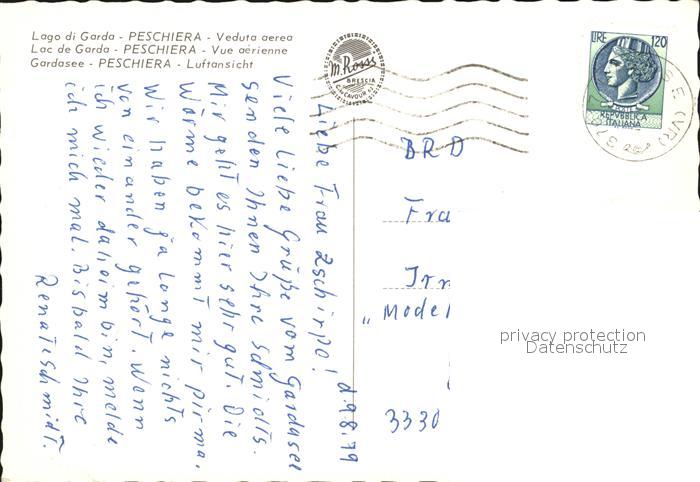 Lago di Garda - PESCHIERA - Veduta aerea
Lac de Garda - PESCHIERA - Vue aérienne
Gardasee - PESCHIERA - Luftansicht
M. Rossi
BRESCIA
LIRE 120
REPVBBLICA
ITALIANA
d. 9.8.79
Liebe Frau Zschirpo!
Viele Liebe Grüße vom Gardasee
senden Ihnen Ihre Schmidts.
Mir geht es hier sehr gut. Die
Wärme bekommt mir pirma.
Wir haben ja lange nichts
von einander gehört. Wenn
ich wieder daheim bin, melde
ich mich mal. Bis bald Ihre
Renate Schmidt.
BRD
Fra
Irm
"Model
3330
privacy protection
Datenschutz